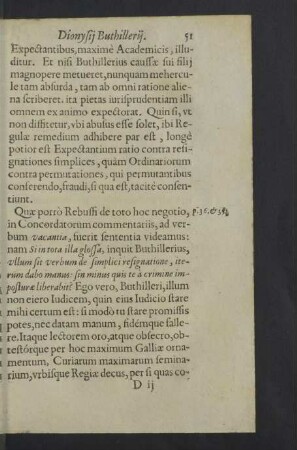 Dionysij Buthillerij. 51
Expectantibus, maximè Academicis, illu-
ditur. Et nisi Buthillerius caussæ sui filij
magnopere metueret, nunquam mehercu-
le tam absurda, tam ab omni ratione alie-
na scriberet. ita pietas iurisprudentiam illi
omnem ex animo expectorat. Quin si, vt
non diffitetur, vbi abusus esse solet, ibi Re-
gulæ remedium adhibere par est, longè
potior est Expectantium ratio contra resi-
gnationes simplices, quàm Ordinariorum
contra permutationes, qui permutantibus
conferendo, fraudi, si qua est, tacitè consen-
tiunt.
Quæ porrò Rebuffi de toto hoc negotio,
in Concordatorum commentariis, ad ver-
bum vacantiæ, fuerit sententia videamus:
nam Si in tota illa glossâ, inquit Buthillerius,
vllum sit verbum de simplici resignatione, ite-
rùm dabo manus: sin minus quis te à crimine im-
posturæ liberabit? Ego verò, Buthilleri, illum
non eiero Iudicem, quin eius Iudicio stare
mihi certum est: si modò tu stare promissis
potes, nec datam manum, fidémque falle-
re. Itaque lectorem oro, atque obsecro, ob-
testórque per hoc maximum Galliæ orna-
mentum, Curiarum maximarum semina-
rium, vrbisque Regiæ decus, per si quas co-
D ij